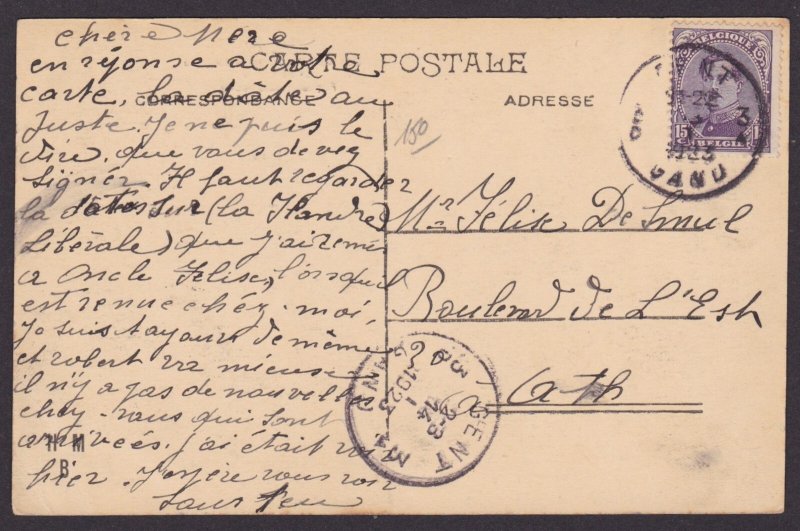 Chère Mere
CARTE POSTALE
en réponse a votre
carte, la date au
CORRESPONDANCE
ADRESSE
juste. Je ne puis le
dire, que vous devez
signer. Il faut regarder
la date sur (la Flandre
Libérale) que j'ai remi
a Oncle Felise, l'orsqu'il
est venue chez moi,
Je suis toujours de même
et robert va mieux
il n'y a pas de nouvelles
chez vous qui sont
arrivées, j'ai était voir
hier. J'espère vous voir
sous peu
150
BELGIQUE
15 15
BELGIË
GENT
1923
GAND
Mr. Félix De Smul
Boulevard de L'Est
20
a Ath
GENT
1923
GAND
H M
B